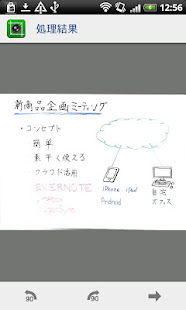 12:56
処理結果
新商品企画ミーティング
・コンセプト
簡単
素早く使える
クラウド活用
EVERNOTE
iPhone, iPad
Android
自宅
オフィス
90
90